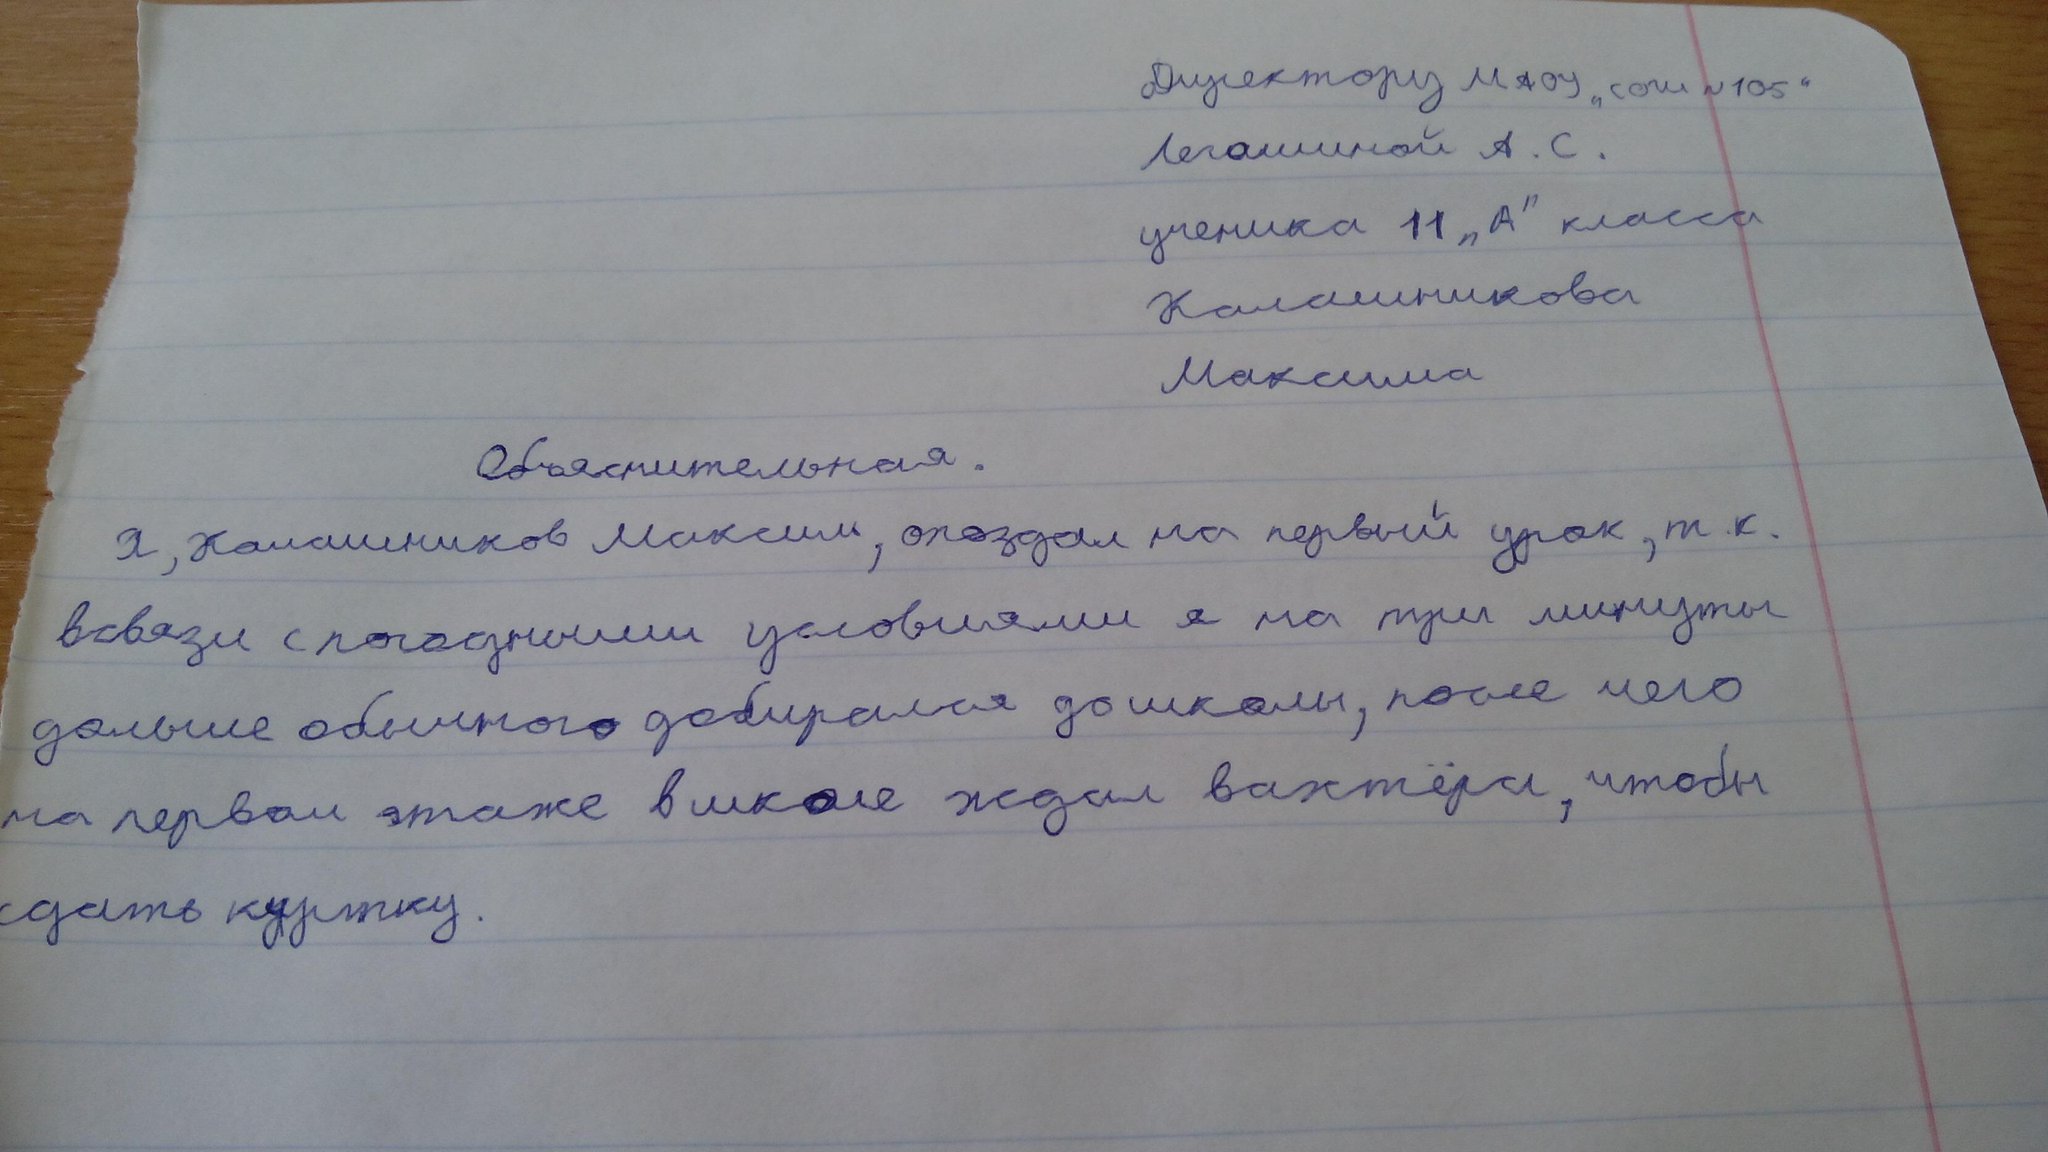 Директору МАОУ „СОШ №105"
Легашиной А.С.
ученика 11 „А" класса
Калашникова
Максима
Объяснительная.
Я, Калашников Максим, опоздал на первый урок, т.к.
всвязи с погодными условиями я на три минуты
дольше обычного добирался до школы, после чего
на первом этаже в школе ждал вахтёра, чтобы
сдать куртку.